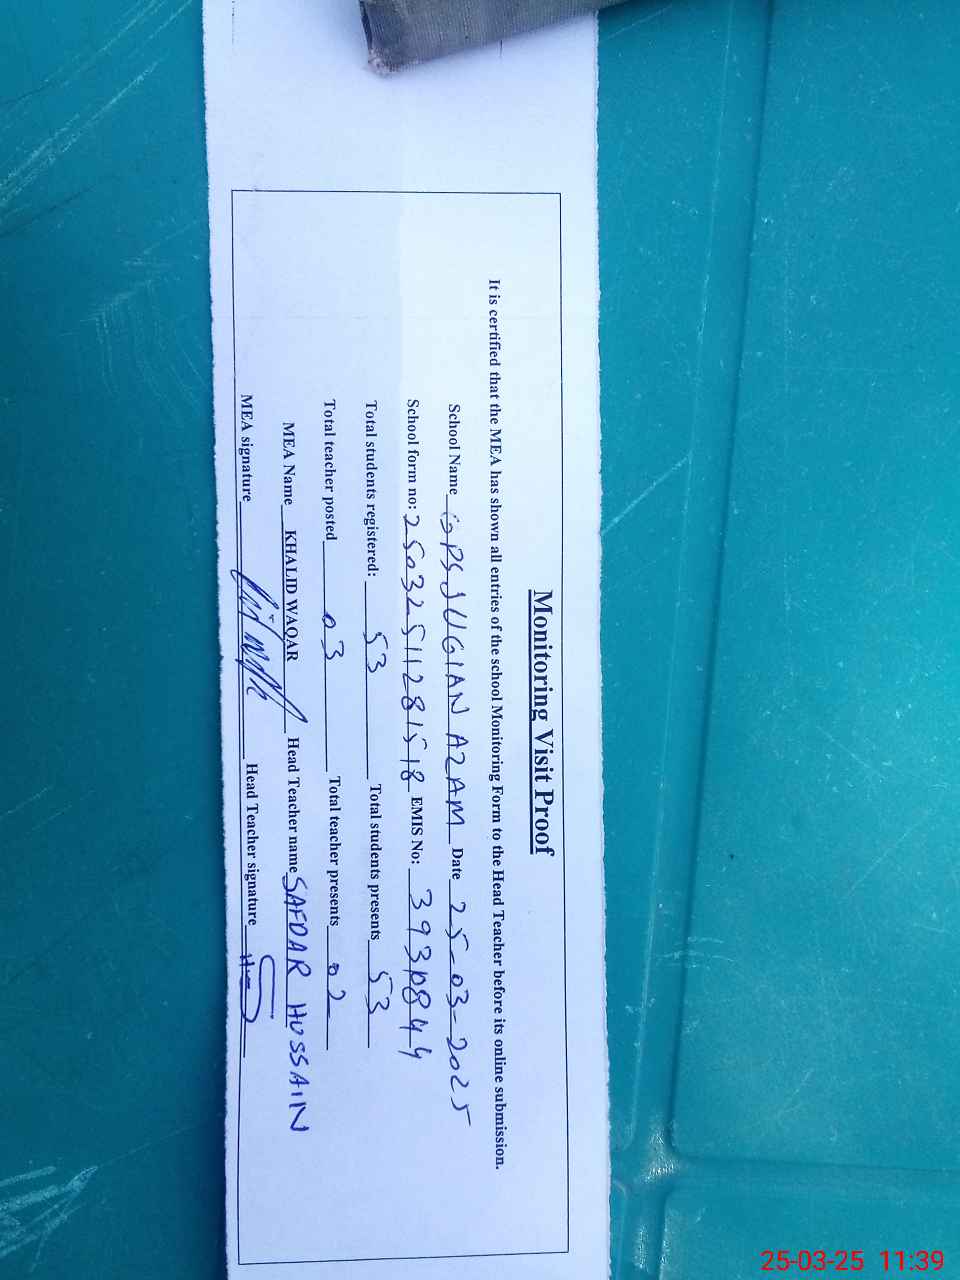 Monitoring Visit Proof
It is certified that the MEA has shown all entries of the school Monitoring Form to the Head Teacher before its online submission.
School Name GPS JUGIAN AZAM Date 25-03-2025
School form no: 25032511281518 EMIS No:
Total students registered: 53 Total students presents 53
Total teacher posted 03 Total teacher presents 02
MEA Name KHALID WAQAR Head Teacher name SAFDAR HUSSAIN
MEA signature Head Teacher signature
25-03-25 11:39